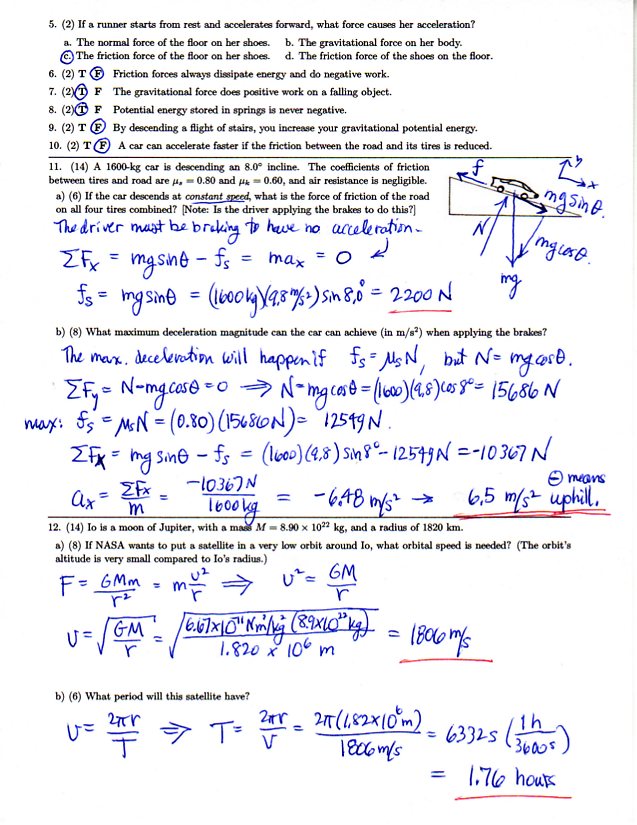 5. (2) If a runner starts from rest and accelerates forward, what force causes her acceleration?
a. The normal force of the floor on her shoes. b. The gravitational force on her body.
c. The friction force of the floor on her shoes. d. The friction force of the shoes on the floor.
6. (2) T F Friction forces always dissipate energy and do negative work.
7. (2) T F The gravitational force does positive work on a falling object.
8. (2) T F Potential energy stored in springs is never negative.
9. (2) T F By descending a flight of stairs, you increase your gravitational potential energy.
10. (2) T F A car can accelerate faster if the friction between the road and its tires is reduced.
11. (14) A 1600-kg car is descending an 8.0° incline. The coefficients of friction
between tires and road are μs = 0.80 and μk = 0.60, and air resistance is negligible.
a) (6) If the car descends at constant speed, what is the force of friction of the road
on all four tires combined? [Note: Is the driver applying the brakes to do this?]
f
y
x
mg sinθ.
N
mg cosθ.
mg
The driver must be braking to have no acceleration.
ΣFx = mg sinθ - fs = max = 0
fs = mg sinθ = (1600kg)(9.8 m/s²) sin 8.0° = 2200 N
b) (8) What maximum deceleration magnitude can the car can achieve (in m/s²) when applying the brakes?
The max. deceleration will happen if fs = μsN, but N = mg cosθ.
ΣFy = N - mg cosθ = 0 ⟹ N = mg cosθ = (1600)(9.8) cos 8° = 15686 N
max: fs = μsN = (0.80)(15686N) = 12549 N.
ΣFx = mg sinθ - fs = (1600)(9.8) sin 8° - 12549 N = -10367 N
ax = ΣFx/m = -10367 N/1600 kg = -6.48 m/s² → 6.5 m/s² uphill.
⊖ means
12. (14) Io is a moon of Jupiter, with a mass M = 8.90 × 10²² kg, and a radius of 1820 km.
a) (8) If NASA wants to put a satellite in a very low orbit around Io, what orbital speed is needed? (The orbit's
altitude is very small compared to Io's radius.)
F = GMm/r² = m v²/r ⟹ v² = GM/r
v = √(GM/r) = √(6.67×10⁻¹¹ Nm²/kg² (8.9×10²² kg)/1.820 × 10⁶ m) = 1806 m/s
b) (6) What period will this satellite have?
v = 2πr/T ⟹ T = 2πr/v = 2π(1.82×10⁶ m)/1806 m/s = 6332 s (1h/3600s)
= 1.76 hours